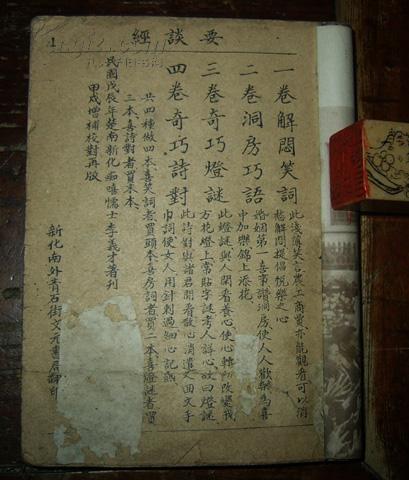 要談經
一卷解悶笑詞
此淺薄笑言農工商賈亦能觀看可以消
愁解悶提倡悅樂之心
二卷洞房巧語
婚姻第一喜事讚洞房使人人歡樂為喜
中加樂錦上添花
三卷奇巧燈謎
此燈謎與人閒看養心使心轉
改變我
方花燈上常貼字謎考人謎心故曰燈謎
四卷奇巧詩對
此詩對與諸君閒看散心消遣文由文手
巾詞使女人用針刺過細心記熟
共四種做四本喜笑詞者買頭本喜房詞者買二本喜燈謎者買
三本喜詩對者買末本
民國戊辰年楚南新化痴嘻儒士李義才著刊
甲戌增補校對再版
新化南外青石街文元書局
印